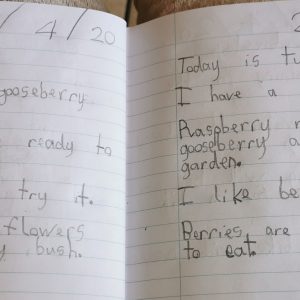 / 4 / 20
gooseberry
ready to
try it.
flowers
bush.
2
Today is
I have a
Raspberry
gooseberry
garden.
I like
Berries are
to eat.